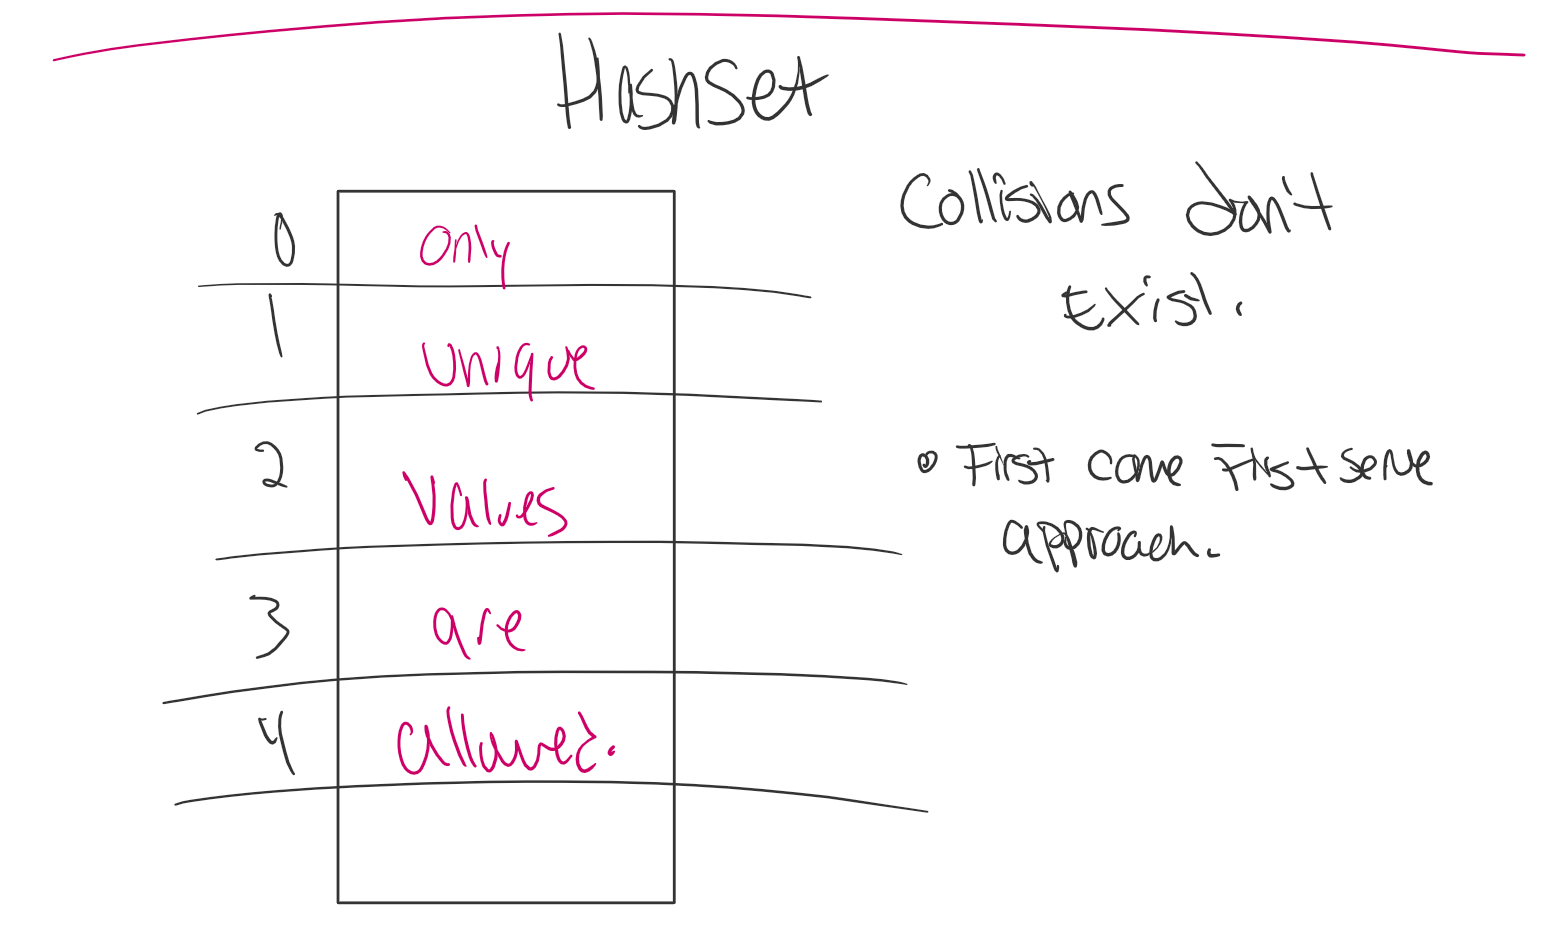 HashSet
0 Only
1 Unique
2 Values
3 are
4 allowed.
Collisions don't
Exist.
• First come First serve
approach.